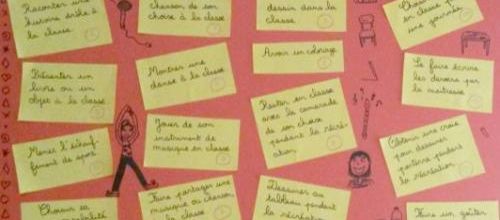 Raconter une
histoire drôle à
la classe
chanson de son
choix à la classe
dessin dans la
classe
Choisir
en classe p
une journée
Présenter un
livre ou un
objet à la classe
Montrer une
danse à la classe
Avoir un coloriage
Se faire écrire
les devoirs par
la maîtresse
Mener l'échauf-
fement de sport
Jouer de son
instrument de
musique en classe
Rester en classe
avec la camarade
de son choix
pendant la récré-
ation
Obtenir une craie
pour dessiner
par terre pendant
la récréation
Choisir sa
Faire partager une
musique ou chanson
la classe
Dessiner au
tableau pendant
la récréation
Faire un goûter